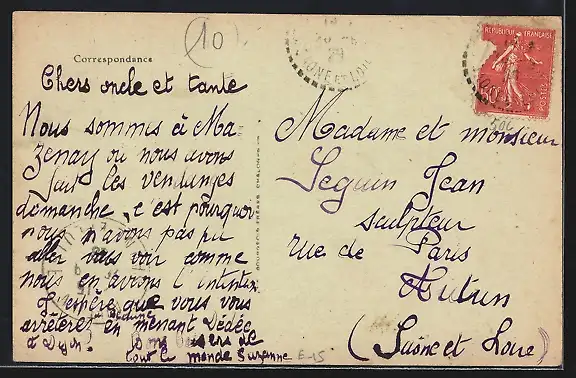 (10)
Correspondance
Chers oncle et tante
Nous sommes à Ma-
zenay où nous avons
fait les vendanges
dimanche, c'est pourquoi
nous n'avons pas pu
aller vous voir comme
nous en avions l'intention
J'espère que vous vous
arrêterez en menant Dédée
à Dijon. Bons baisers de
tout le monde Suzanne
E-15
BOURGEOIS FRÈRES CHALON
REPUBLIQUE FRANÇAISE
POSTES
50
SAONE ET LOIRE
Madame et monsieur
Seguin Jean
sculpteur
rue de Paris
Autun
(Saône et Loire)